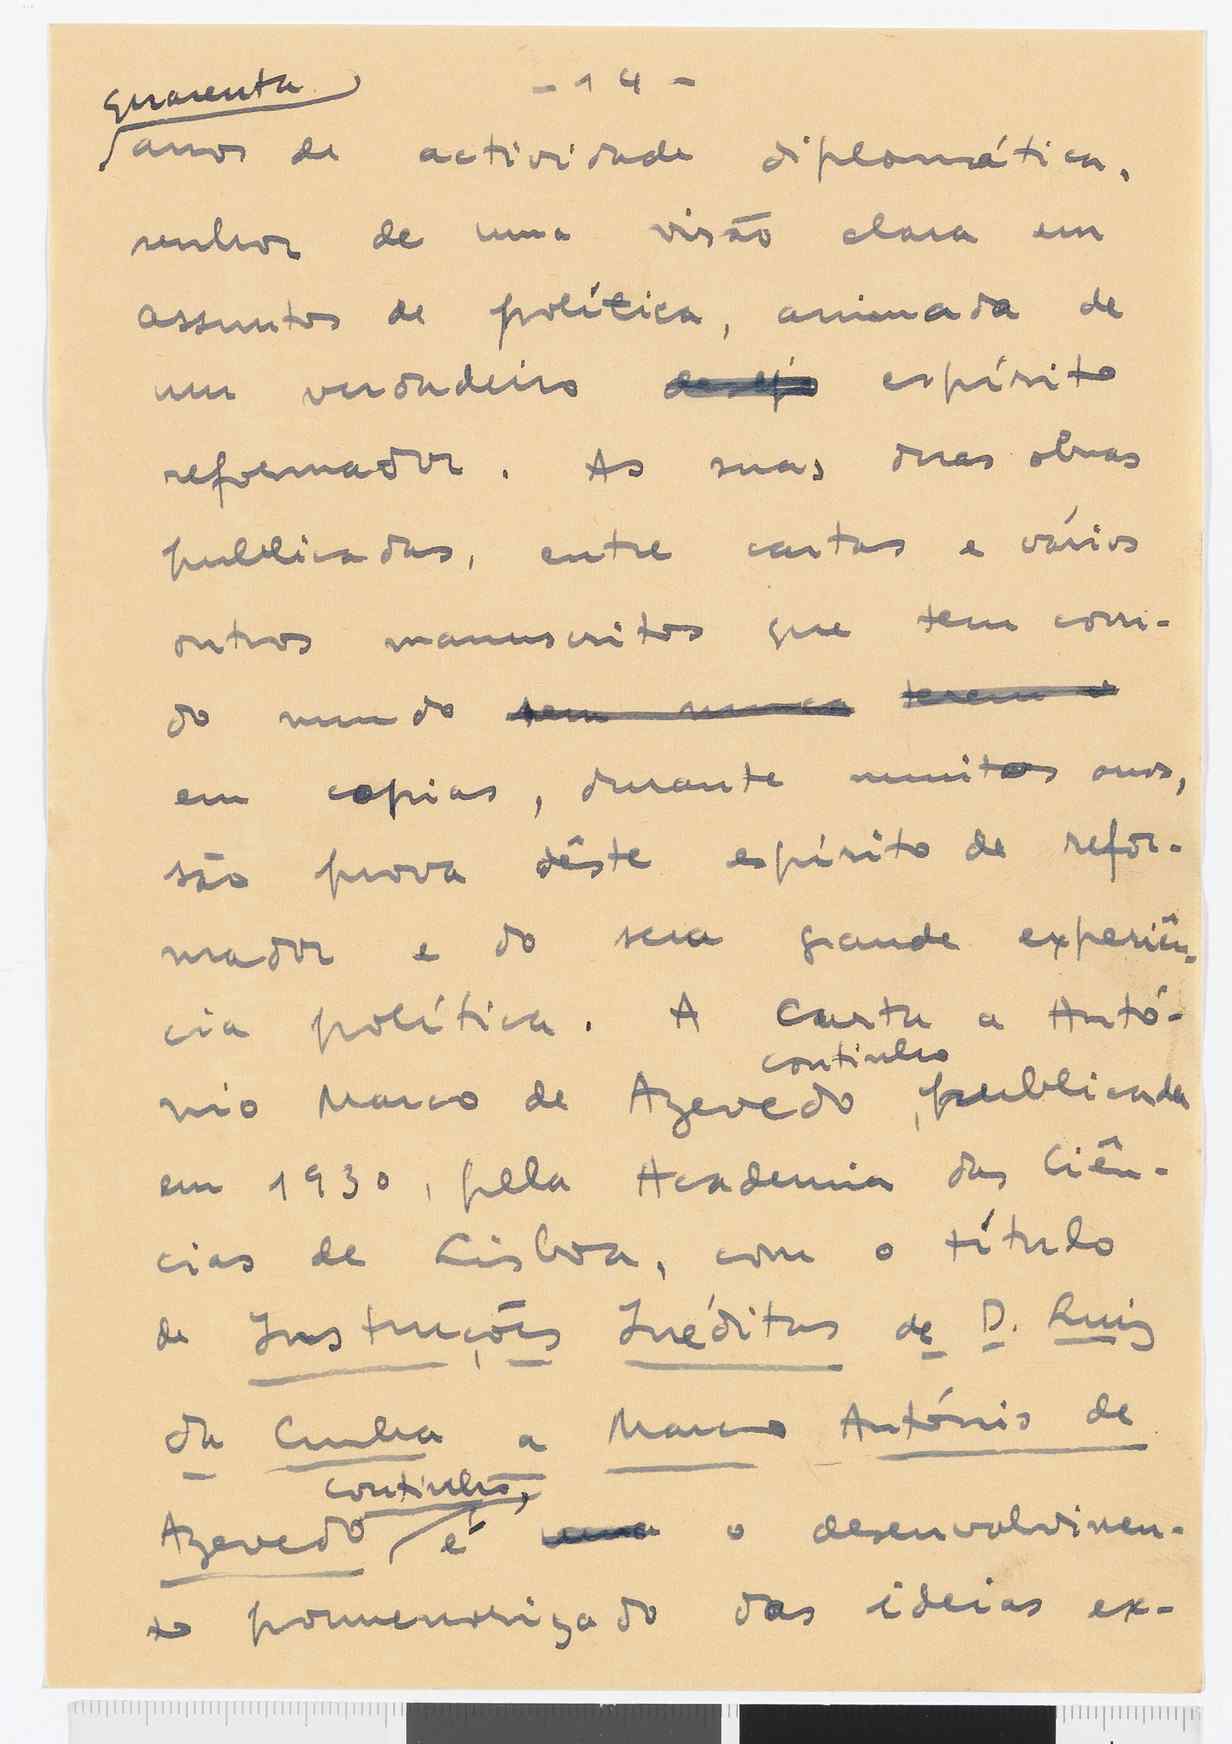 - 14 -
quarenta
anos de actividade diplomática,
senhor de uma visão clara em
assuntos de política, animada de
um verdadeiro desejo espírito
reformador. As suas duas obras
publicadas, entre cartas e vários
outros manuscritos que tem corri-
do mundo sem nunca terem o
em copias, durante muitos anos,
são prova dêste espírito de refor-
mador e do sua grande experiên-
cia política. A Carta a Antó-
coutinho
nio Marco de Azevedo, publicada
em 1930, pela Academia das Ciên-
cias de Lisboa, com o título
de Instruções Inéditas de D. Luiz
da Cunha a Marco António de
coutinho,
Azevedo é uma o desenvolvimen-
to pormenorizado das ideias ex-